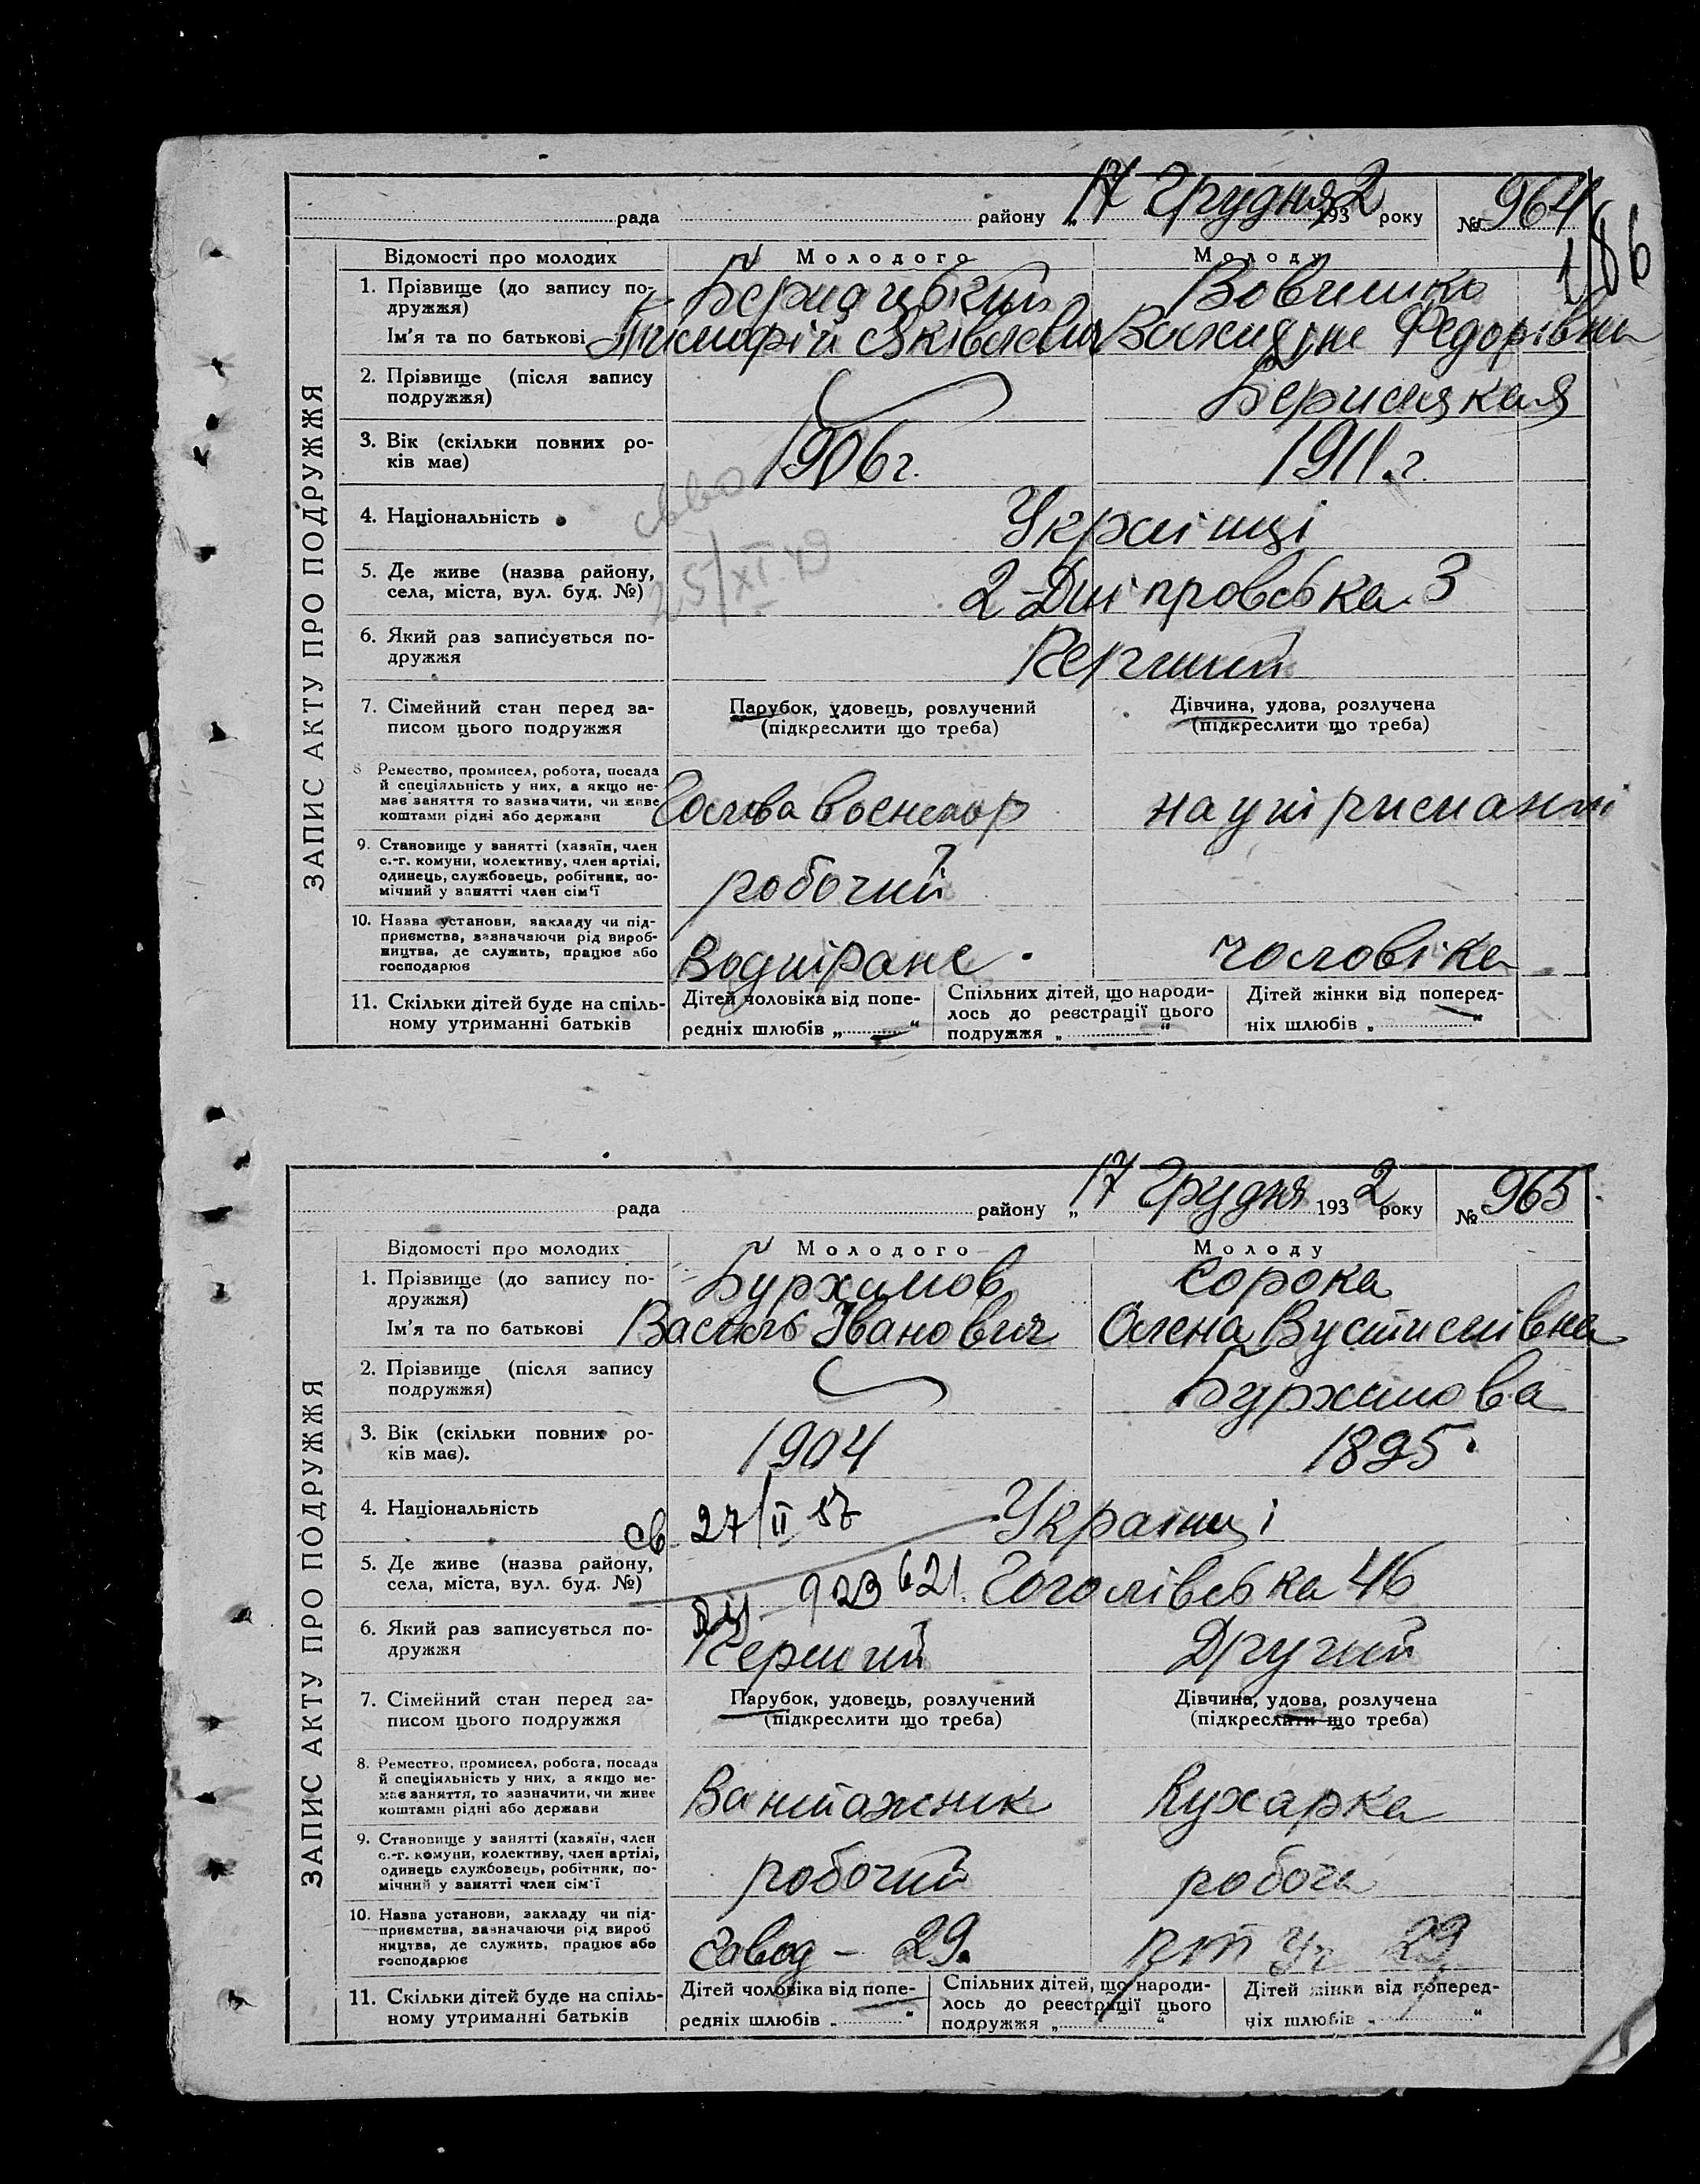 рада району „ 17 Грудня 1932 року № 964
186
Відомості про молодих Молодого Молоду
1. Прізвище (до запису по-
дружжя)
Вовченко
Ім'я та по батькові Тимофій Яківлевич Федорівна
2. Прізвище (після запису
подружжя)
3. Вік (скільки повних ро-
ків має) 1906 г. 1911 г.
4. Національність Українці
25/XI 49
5. Де живе (назва району,
села, міста, вул. буд. №) 2-Дніпровська 3
6. Який раз записується по-
дружжя Перший
7. Сімейний стан перед за-
писом цього подружжя
Парубок, удовець, розлучений
(підкреслити що треба)
Дівчина, удова, розлучена
(підкреслити що треба)
8 Ремество, промисел, робота, посада
й спеціяльність у них, а якщо не-
має заняття то зазначити, чи живе
коштами рідні або держави
Голова на утриманні
9. Становище у занятті (хазяїн, член
с.-г. комуни, колективу, член артілі,
одинець, службовець, робітник, по-
мічний у занятті член сім'ї
робочий
10. Назва установи, закладу чи під-
приємства, зазначаючи рід вироб-
ництва, де служить, працює або
господарює
чоловіка
11. Скільки дітей буде на спіль-
ному утриманні батьків
Дітей чоловіка від попе-
редніх шлюбів „ “
Спільних дітей, що народи-
лось до реєстрації цього
подружжя „ “
Дітей жінки від поперед-
ніх шлюбів „ “
ЗАПИС АКТУ ПРО ПОДРУЖЖЯ
рада району „ 17 Грудня 1932 року № 965
Відомості про молодих Молодого Молоду
1. Прізвище (до запису по-
дружжя) Бурхимов Сорока
Ім'я та по батькові Василь Іванович Олена Вустимівна
2. Прізвище (після запису
подружжя) Бурхимова
3. Вік (скільки повних ро-
ків має). 1904 1895
4. Національність Українці
св. 27/II 57
5. Де живе (назва району,
села, міста, вул. буд. №) 923621. Гоголівська 46
6. Який раз записується по-
дружжя Перший Другий
7. Сімейний стан перед за-
писом цього подружжя
Парубок, удовець, розлучений
(підкреслити що треба)
Дівчина, удова, розлучена
(підкреслити що треба)
8. Ремество, промисел, робота, посада
й спеціяльність у них, а якщо не-
має заняття, то зазначити, чи живе
коштами рідні або держави
Вантажник Кухарка
9. Становище у занятті (хазяїн, член
с.-г. комуни, колективу, член артілі,
одинець службовець, робітник, по-
мічний у занятті член сім'ї
робочий робоча
10. Назва установи, закладу чи під-
приємства, зазначаючи рід вироб
ництва, де служить, працює або
господарює
Завод – 29. 29
11. Скільки дітей буде на спіль-
ному утриманні батьків
Дітей чоловіка від попе-
редніх шлюбів „ “
Спільних дітей, що народи-
лось до реєстрації цього
подружжя „ “
Дітей жінки від поперед-
ніх шлюбів „ “
ЗАПИС АКТУ ПРО ПОДРУЖЖЯ